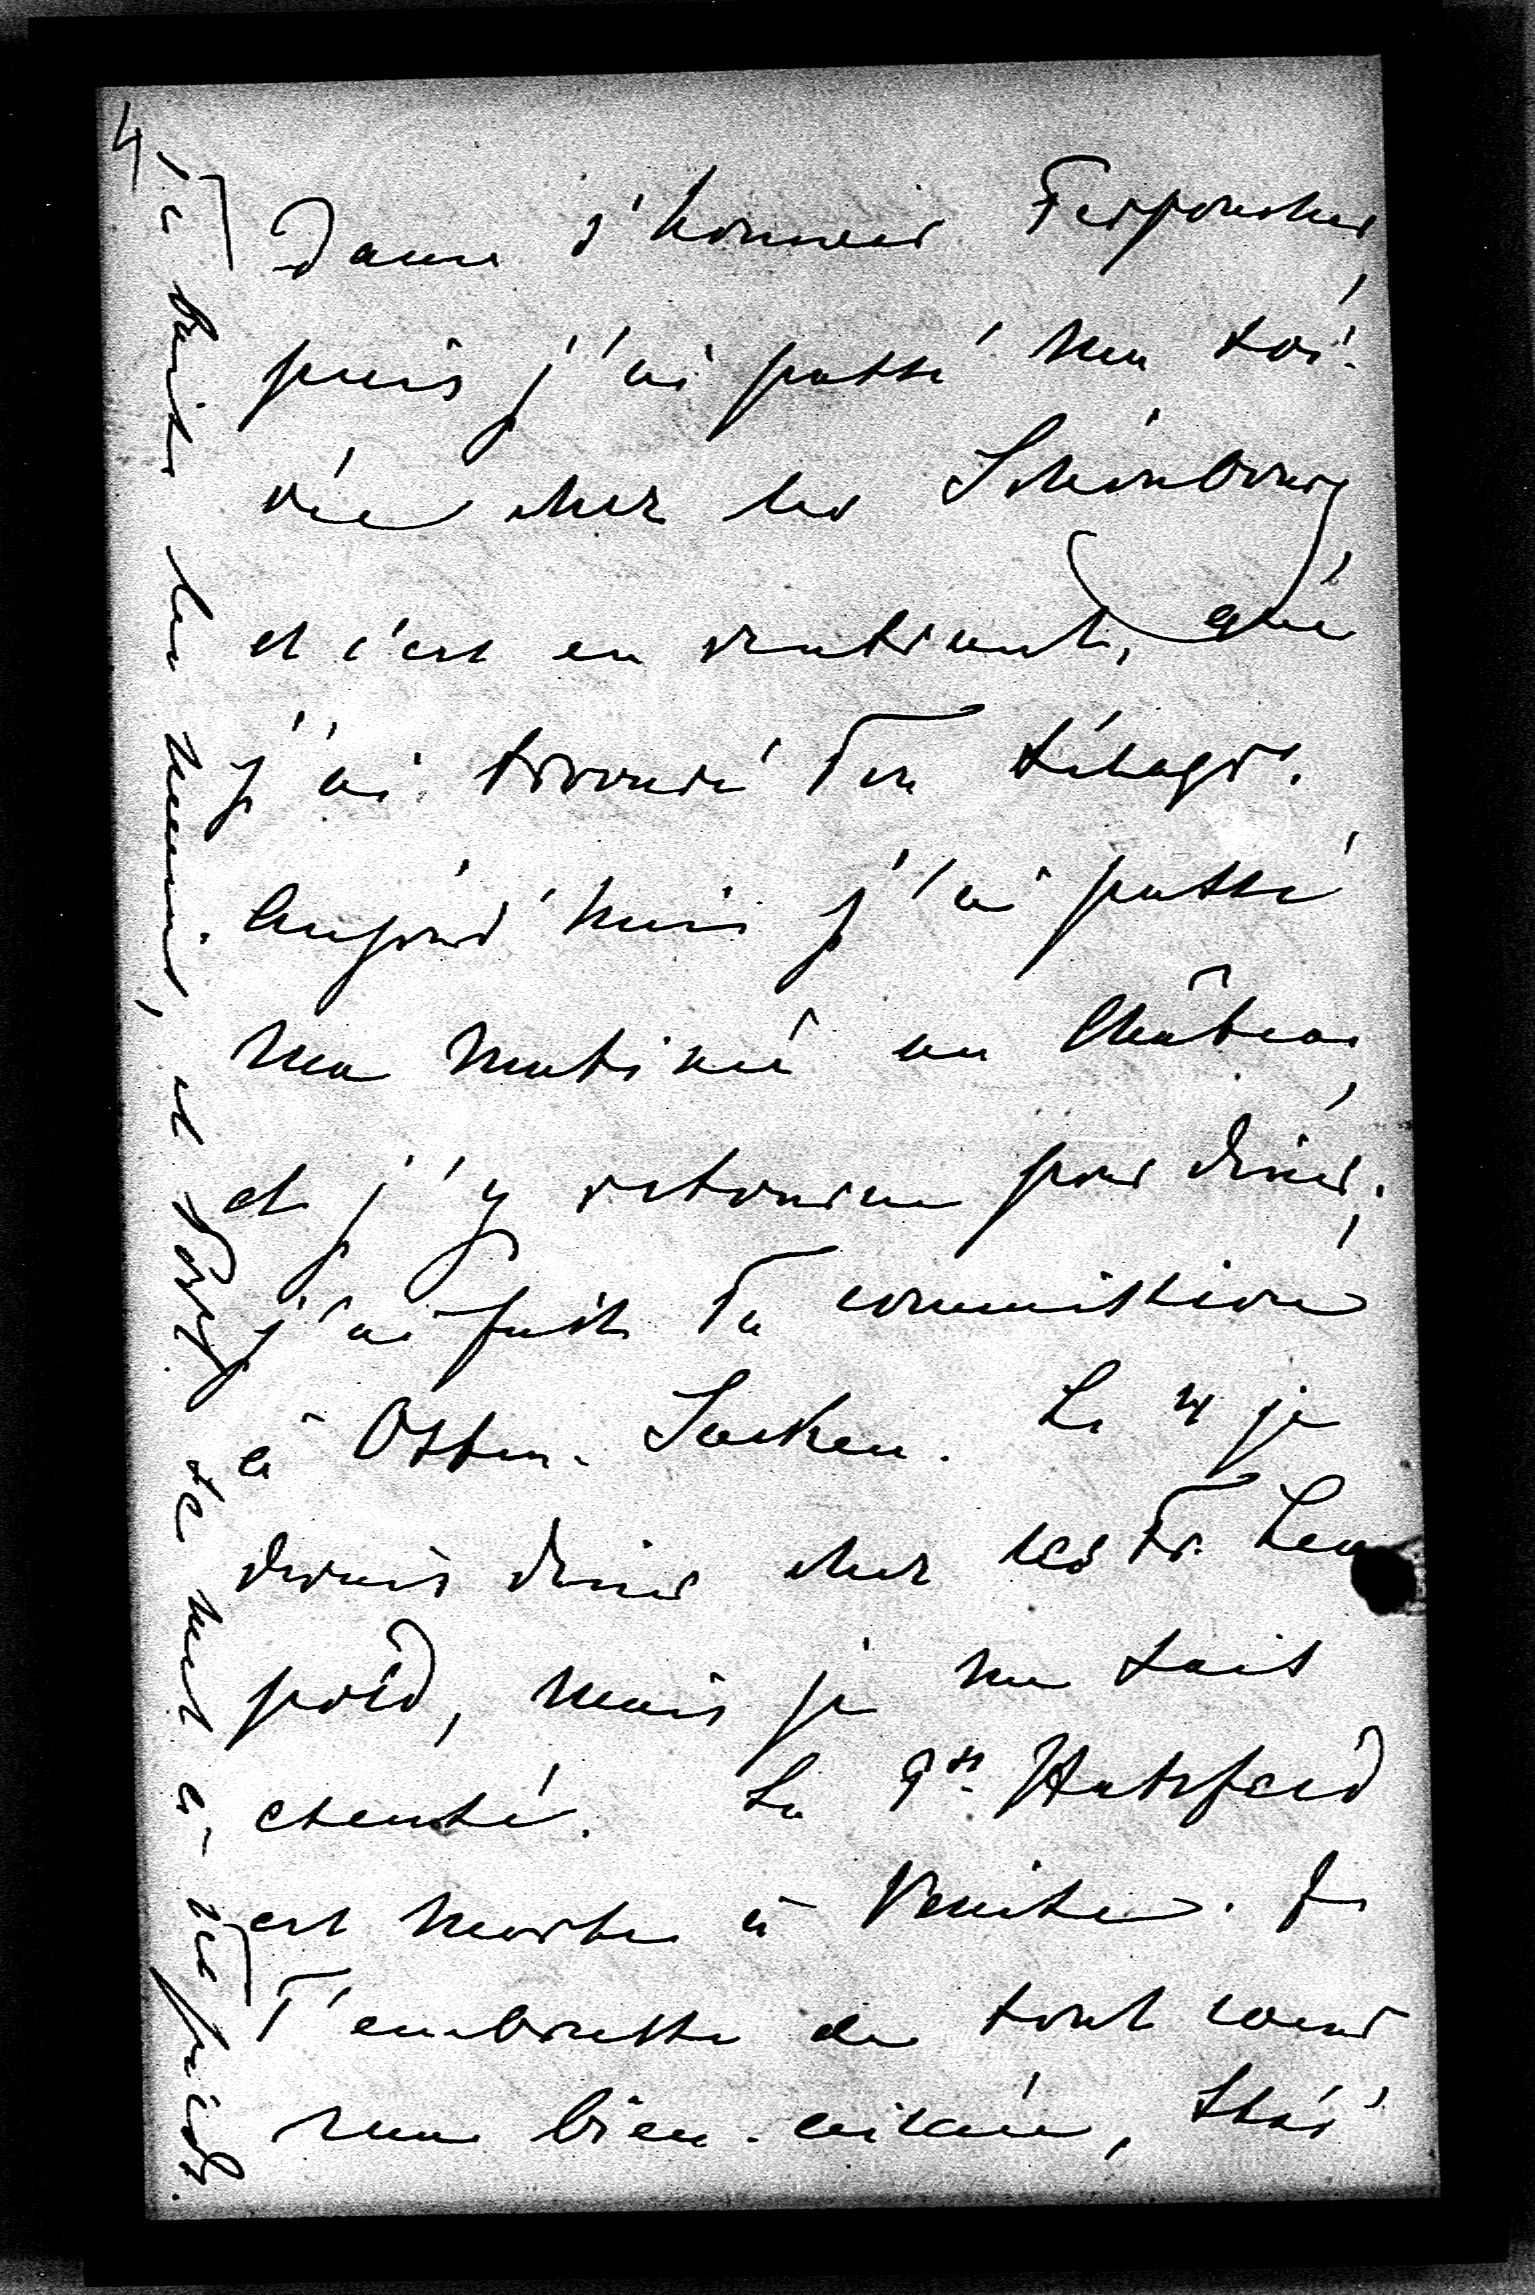 4
Dame d'honneur Perponcher,
puis j'ai passé ma soi-
rée chez les Schönbourg
et c'est en rentrant, que
j'ai trouvé Ton télégr.
Aujourd'hui j'ai passé
ma matinée au Château,
et j'y retourne pour dîner;
j'ai fait Ta commission
à Osten-Sacken. Le 4 je
devais dîner chez les Fr. Leo
pold, mais je me suis
excusé. La Pss Hatzfeld
est morte à Venise. Je
T'embrasse de tout coeur
ma bien-aimée,
Te baise les mains, et se met à Tes pieds.